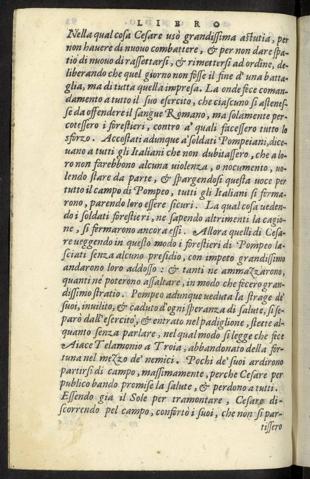 LIBRO
Nella qual cosa Cesare usò grandissima astutia, per
non hauere di nuouo combattere, & per non dare spa-
tio di nuouo di rassettarsi, & rimettersi ad ordine, de-
liberando che quel giorno non fosse il fine d'una batta-
glia, ma di tutta quella impresa. La onde fece coman-
damento a tutto il suo esercito, che ciascuno si astenes-
se da offendere il sangue Romano, ma solamente per-
cotessero i forestieri, contro a' quali facessero tutto lo
sforzo. Accostati adunque a' soldati Pompeiani, dice-
uano a tutti gli Italiani che non dubitassero, che a lo-
ro non farebbono alcuna uiolenza, o nocumento, uo-
lendo stare da parte, & spargendosi questa uoce per
tutto il campo di Pompeo, tutti gli Italiani si ferma-
rono, parendo loro essere sicuri. La qual cosa ueden-
do i soldati forestieri, ne sapendo altrimenti la cagio-
ne, si fermarono ancora essi. Allora quelli di Cesa-
re ueggendo in questo modo i forestieri di Pompeo la-
sciati senza alcuno presidio, con impeto grandissimo
andarono loro addosso: & tanti ne ammazzarono,
quanti ne poterono assaltare, in modo che fecero gran-
dissimo stratio. Pompeo adunque ueduta la strage de'
suoi, inuilito, & caduto d'ogni speranza di salute, si se-
parò dall'esercito, & entrato nel padiglione, stette al-
quanto senza parlare, nel qual modo si legge che fece
Aiace Telamonio a Troia, abbandonato della for-
tuna nel mezzo de' nemici. Pochi de' suoi ardirono
partirsi di campo, massimamente, perche Cesare per
publico bando promise la salute, & perdono a tutti.
Essendo gia il Sole per tramontare, Cesare di-
scorrendo pel campo, confortò i suoi, che non si par-
tissero